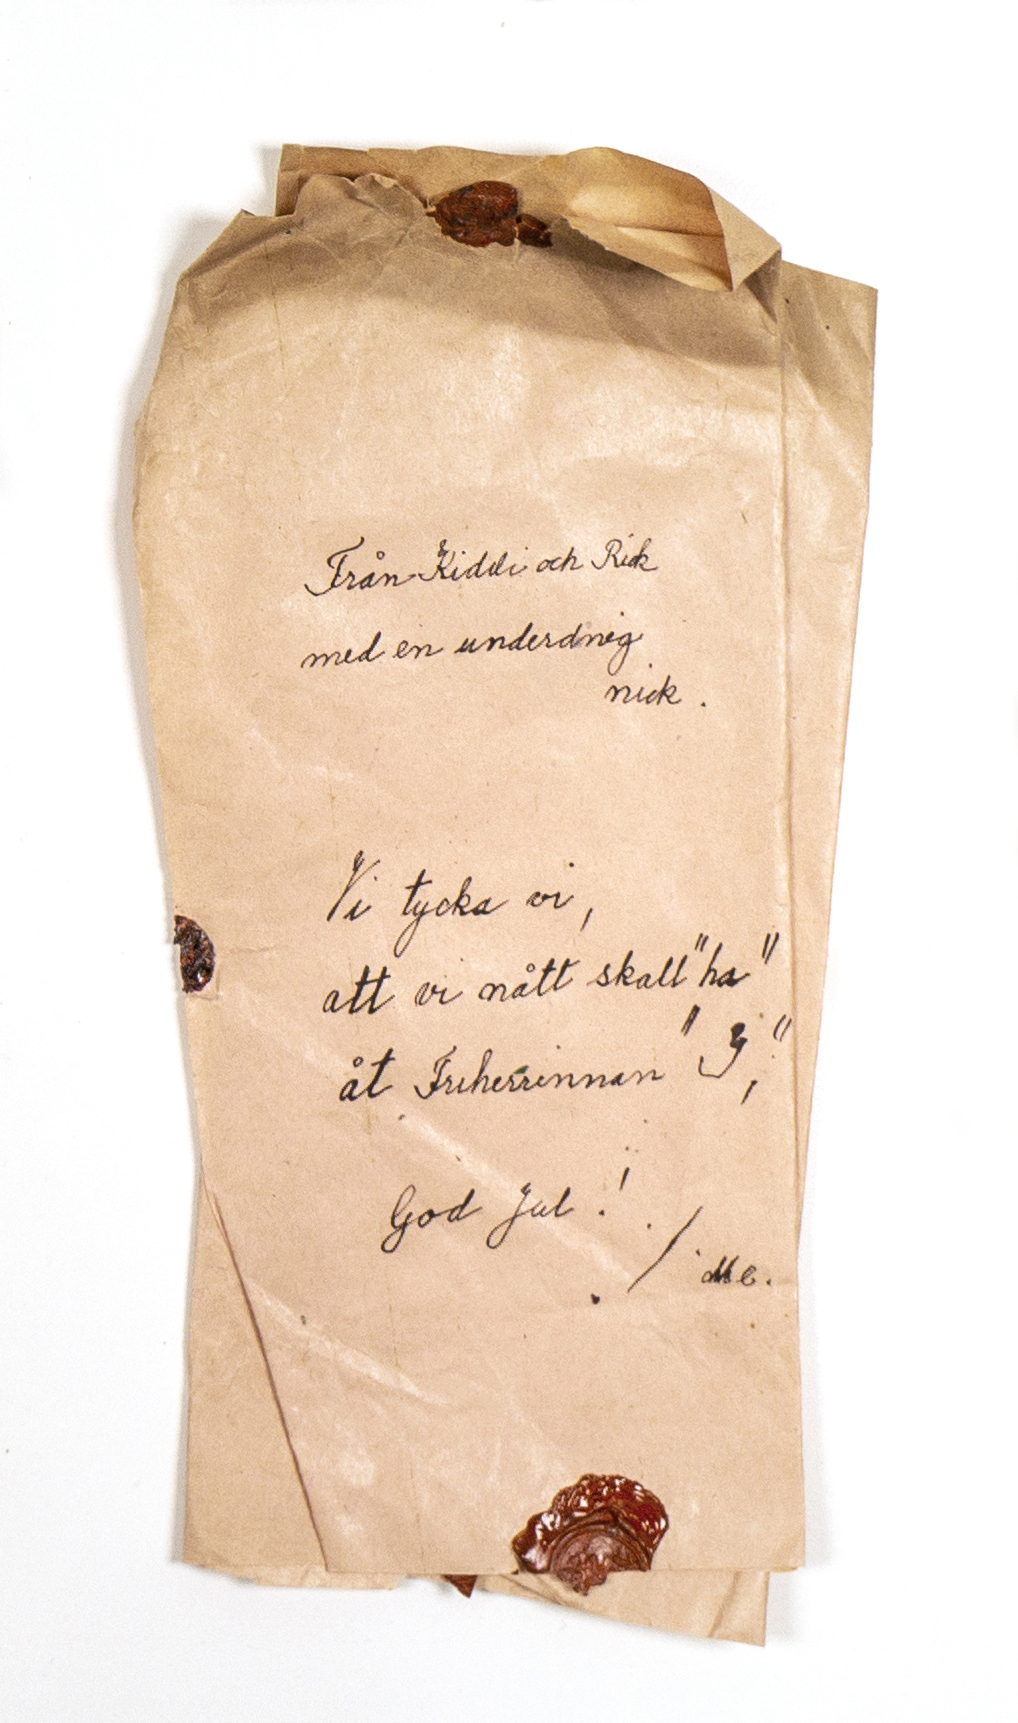 Från Kiddi och Rick
med en underdnig
nick.
Vi tycka vi,
att vi nått skall "ha"
åt Friherrinnan "J,"
God Jul!